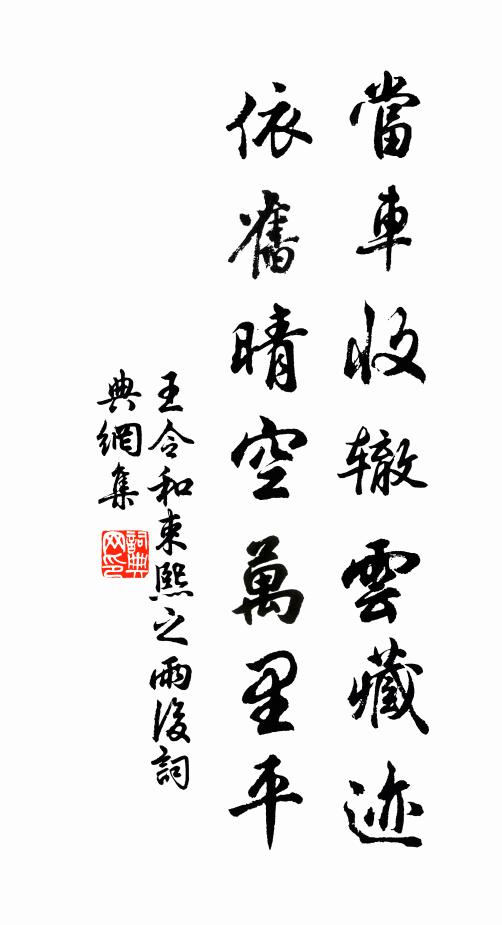 當車收辙雲藏迹
依舊晴空萬里平
王令和束熙之雨後詞
典網集
詞典
网印